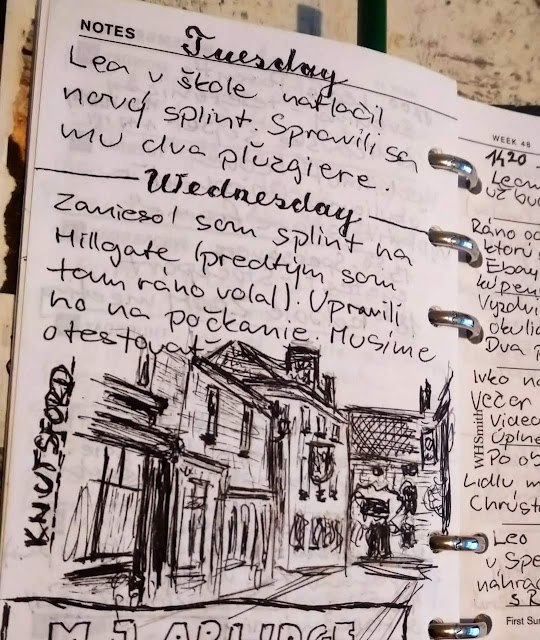 NOTES
Tuesday
Lea v škole natlačil
nový splint. Spravili sa
mu dva pľuzgiere.
Wednesday
Zaniesol som splint na
Hillgate (predtým som
tam ráno volal). Upravili
ho na počkanie. Musíme
otestovať
KNUTSFORD
M J ARLIDGE
WEEK 48
1420
Leam
už bu
Ráno oc
ktorú
Ebay
kúpen
Vyzdvi
okulia
Dva p
Ivko na
Večer
Video
Úplne
Po ob
Lidlu m
Chrúst
WHSmith
Leo
v Spe
náhrad
S R
First Su